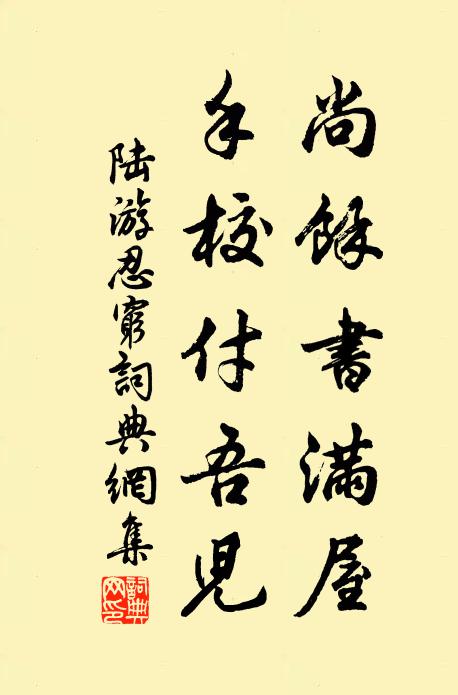 尚餘書滿屋
手校付吾兒
陸游忍窮詞典網集
詞典網印